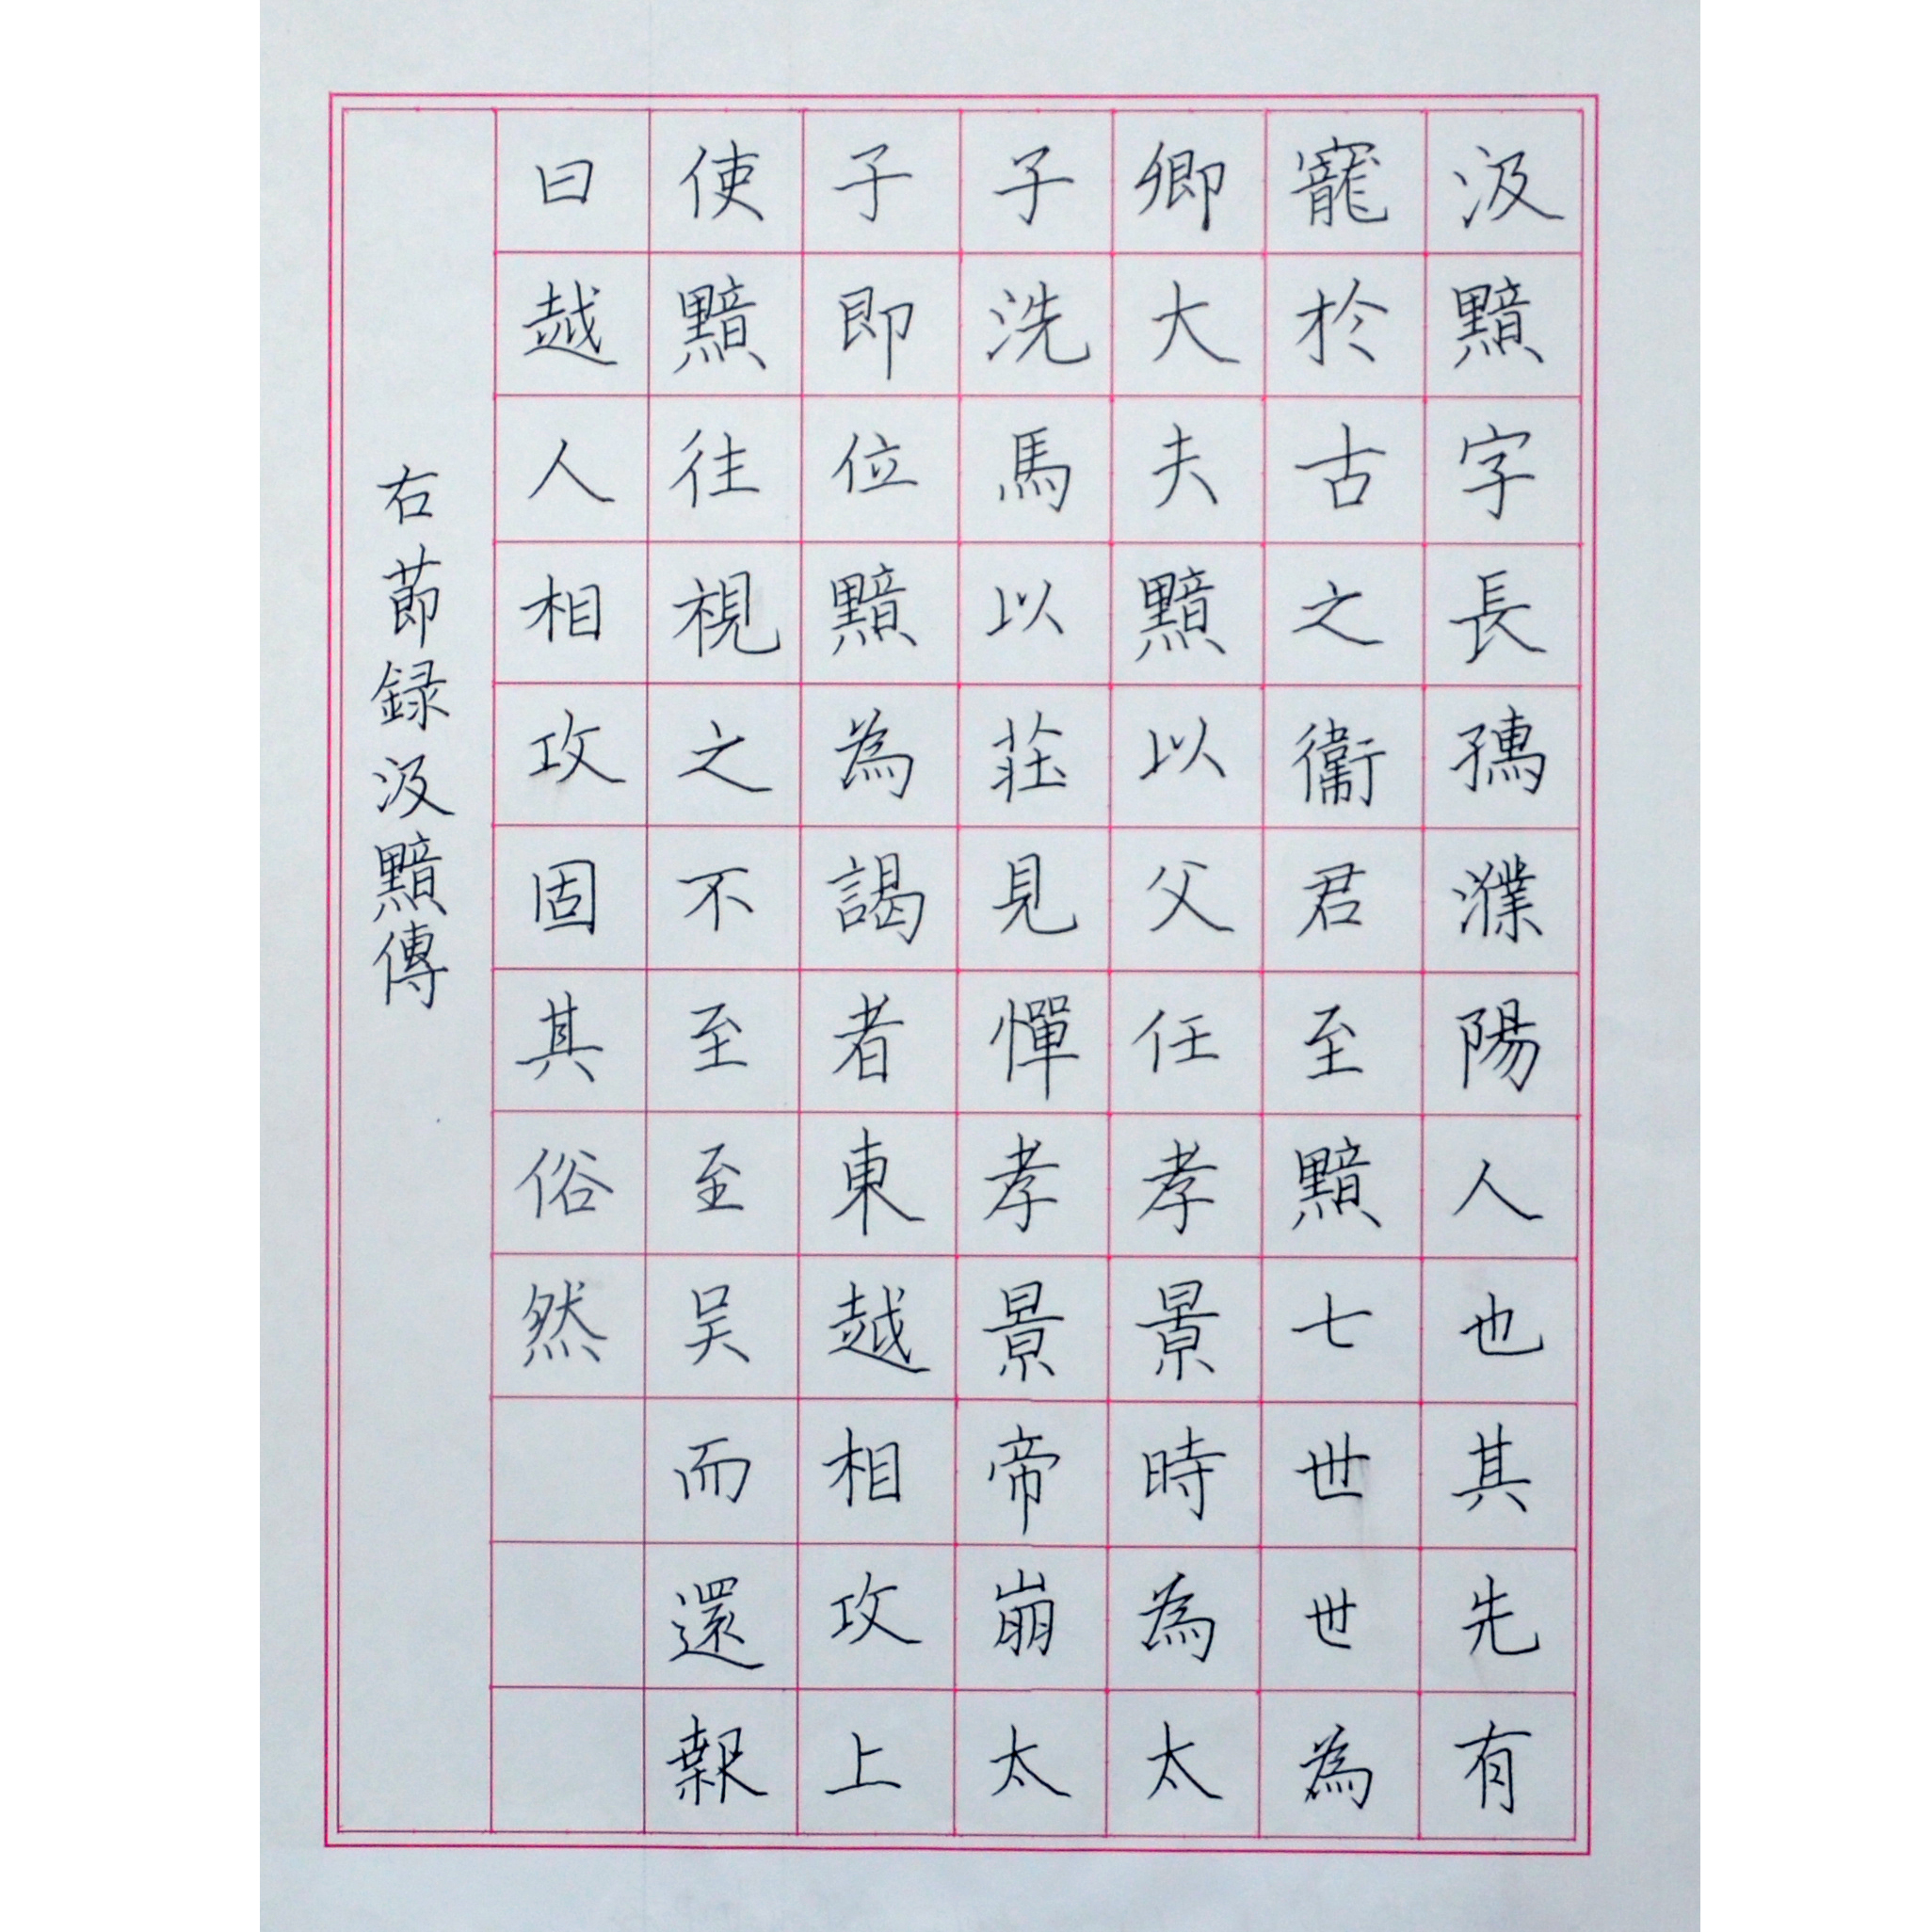 汲黯字長孺濮陽人也其先有
寵於古之衞君至黯七世世為
卿大夫黯以父任孝景時為太
子洗馬以莊見憚孝景帝崩太
子即位黯為謁者東越相攻上
使黯往視之不至至吴而還報
曰越人相攻固其俗然
右節録汲黯傳